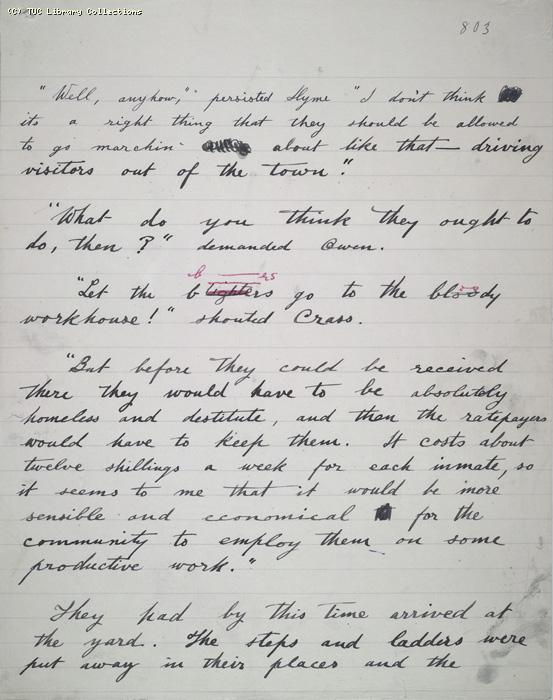 (C) TUC Library Collections
803
"Well, anyhow," persisted Slyme "I don't think
its a right thing that they should be allowed
to go marchin' about like that — driving
visitors out of the town".
"What do you think they ought to
do, then?" demanded Owen.
b——rs
"Let the b ers go to the bloody
workhouse!" shouted Crass.
"But before they could be received
there they would have to be absolutely
homeless and destitute, and then the ratepayers
would have to keep them. It costs about
twelve shillings a week for each inmate, so
it seems to me that it would be more
sensible and economical for the
community to employ them on some
productive work."
They had by this time arrived at
the yard. The steps and ladders were
put away in their places and the